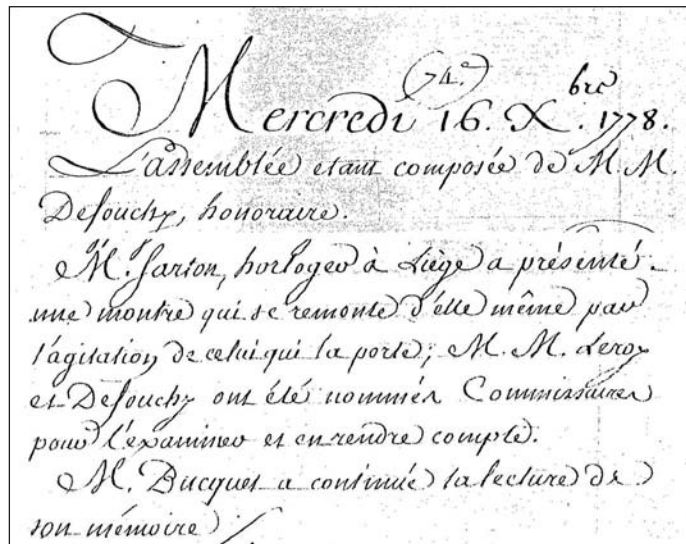 74.e
Mercredi 16. Xbre. 1778.
L'assemblée etant composée de M. M.
Defouchy, honoraire.
M.r Sarton, horloger à Liège a présenté
une montre qui se remonte d'elle même par
l'agitation de celui qui la porte; M. M. Leroy
et Defouchy ont été nommés Commissaires
pour l'examiner et en rendre compte.
M. Bucquet a continué la lecture de
son mémoire